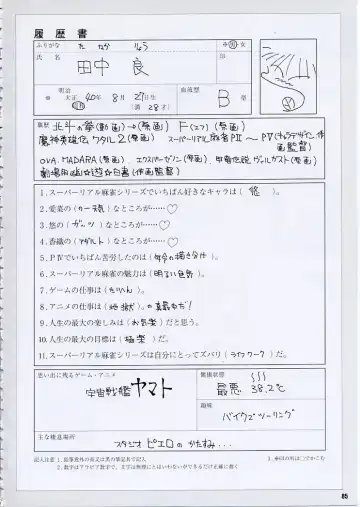 履歴書
ふりがな たなか りょう
氏名 田中 良
※男女
印
明治 大正 昭和 40年 8月 27日生 (満 28才)
血液型 B型
職歴 北斗の拳(動画)→(原画) F(エフ)(原画)
魔神英雄伝 ワタル2(原画) スーパーリアル麻雀PⅡ〜PⅣ(キャラデザイン,作画監督)
OVA.MADARA(原画). エクスパーゼノン(原画). 甲竜伝説ヴィルガスト(原画)
劇場用幽☆遊☆白書(作画監督)
1. スーパーリアル麻雀シリーズでいちばん好きなキャラは(悠)。
2. 愛菜の(カー天気)なところが……♡
3. 悠の(ガッツ)なところが……♡
4. 香織の(アダルト)なところが……♡
5. PⅣでいちばん苦労したのは(毎今の描き合件)。
6. スーパーリアル麻雀の魅力は(明るい色気)。
7. ゲームの仕事は(たいへん)。
8. アニメの仕事は(地獄)。の真最中だ!
9. 人生の最大の楽しみは(お気楽)だと思う。
10. 人生の最大の目標は(極楽)だ。
11. スーパーリアル麻雀シリーズは自分にとってズバリ(ライフワーク)だ。
思い出に残るゲーム・アニメ
宇宙戦艦ヤマト
健康状態
最悪 38.2℃
趣味
バイクでツーリング
主な棲息場所
スタジオ ピエロのかたすみ...
記入注意 1. 鉛筆以外の青又は黒の筆記具で記入 3. ※印の所は○でかこむ
2. 数字はアラビア数字で、文字は無理にとはいわないができるだけ正確に書く
85